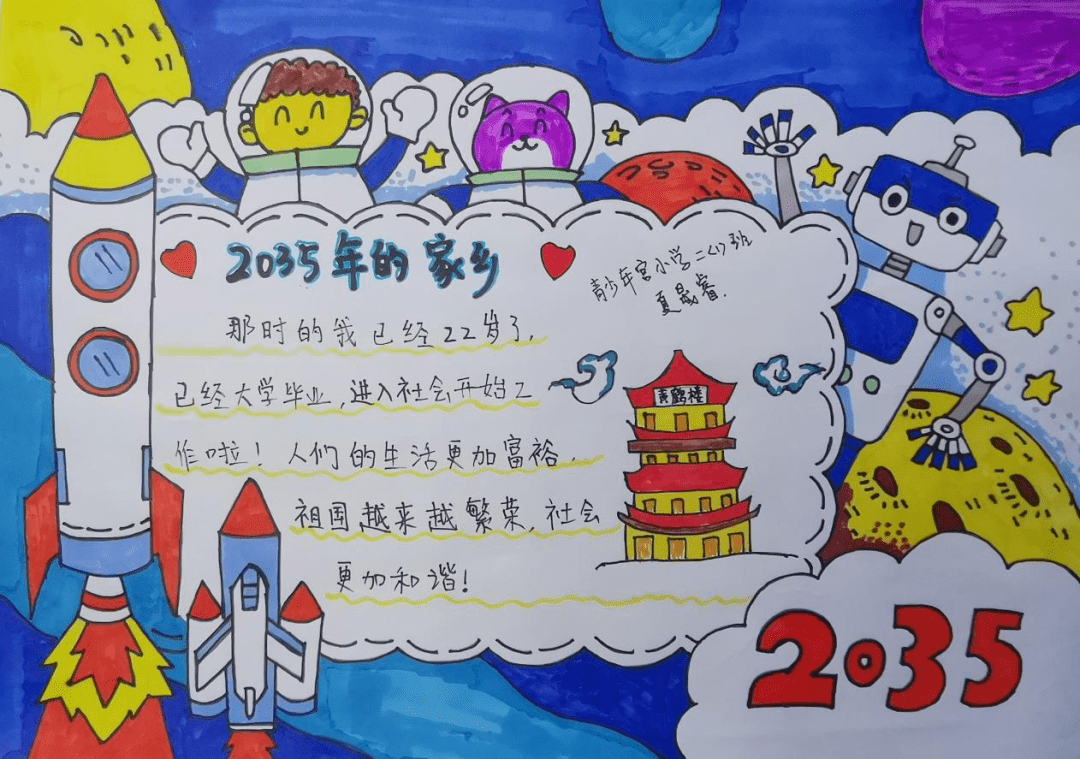 2035年的家乡
青少年宫小学二(1)班
夏晟睿.
那时的我已经22岁了,
已经大学毕业,进入社会开始工
作啦!人们的生活更加富裕.
祖国越来越繁荣,社会
更加和谐!
黄鹤楼
2035